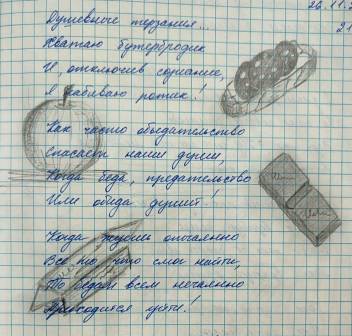 26.11.2
21
Душевные терзания...
Хватаю бутербродик
И, отключив сознание,
Я набиваю ротик!
Как часто объедательство
Спасает наши души,
Когда беда, предательство
Или обида душит!
Когда жуёшь отчаянно
Всё то, что смог найти,
То бедам всем нечаянно
Приходится уйти!